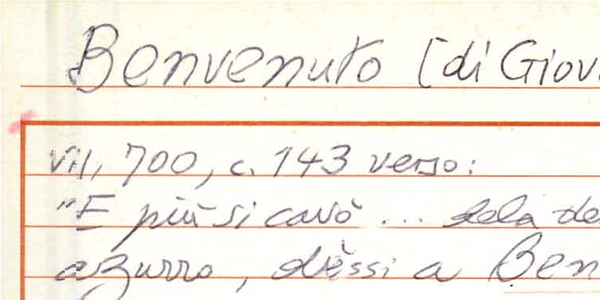 Benvenuto [di Giov
VII, 700, c. 143 verso:
"E più si cavò ... dela de
azzurro, dèssi a Ben